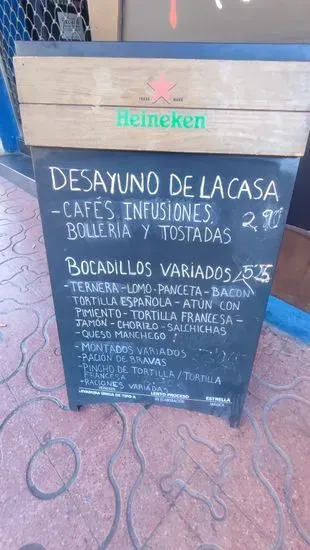 TRADE MARK
Heineken
DESAYUNO DE LA CASA
-CAFÉS INFUSIONES, 2,90
BOLLERÍA Y TOSTADAS
BOCADILLOS VARIADOS
-TERNERA-LOMO-PANCETA-BACON
TORTILLA ESPAÑOLA-ATÚN CON
PIMIENTO-TORTILLA FRANCESA-
JAMÓN-CHORIZO-SALCHICHAS
-QUESO MANCHEGO
-MONTADOS VARIADOS
-RACIÓN DE BRAVAS
-PINCHO DE TORTILLA/TORTILLA
FRANCESA
-RACIONES VARIADAS
LEVADURA ÚNICA DE TIPO A LENTO PROCESO ESTRELLA